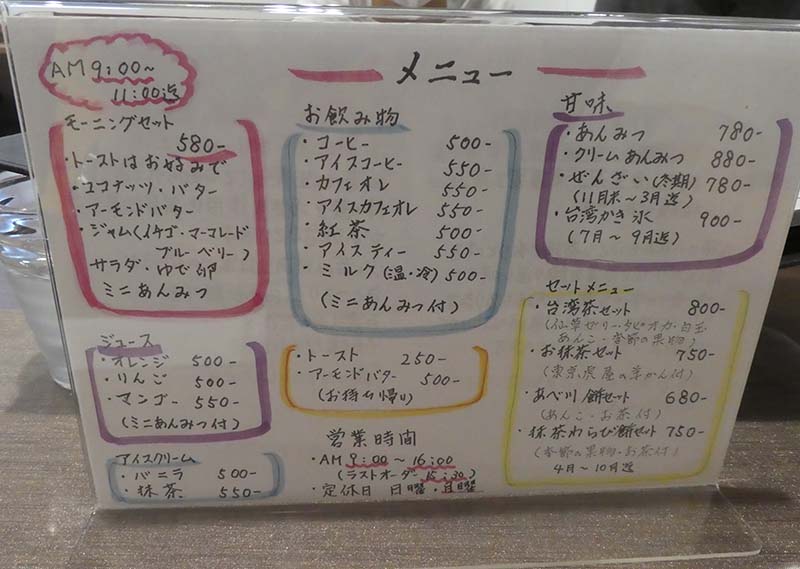 メニュー
AM9:00~
11:00迄
モーニングセット
580-
・トーストはお好みで
・ココナッツ・バター
・アーモンドバター
・ジャム(イチゴ・マーマレード
ブルーベリー)
サラダ・ゆで卵
ミニあんみつ
ジュース
・オレンジ 500-
・りんご 500-
・マンゴー 550-
(ミニあんみつ付)
アイスクリーム
・バニラ 500-
・抹茶 550-
お飲み物
・コーヒー 500-
・アイスコーヒー 550-
・カフェオレ 550-
・アイスカフェオレ 550-
・紅茶 500-
・アイスティー 550-
・ミルク(温・冷) 500-
(ミニあんみつ付)
・トースト 250-
・アーモンドバター 500-
(お持ち帰り)
営業時間
・AM 9:00~16:00
(ラストオーダー15:30)
・定休日 日曜・月曜
甘味
・あんみつ 780-
・クリームあんみつ 880-
・ぜんざい(冬期) 780-
(11月末~3月迄)
・台湾かき氷 900-
(7月~9月迄)
セットメニュー
・台湾茶セット 800-
(仙草ゼリー・タピオカ・白玉
あんこ・季節の果物)
・お抹茶セット 750-
(東京虎屋の羊かん付)
・あべ川餅セット 680-
(あんこ・お茶付)
・抹茶わらび餅セット 750-
(季節の果物・お茶付)
4月~10月迄